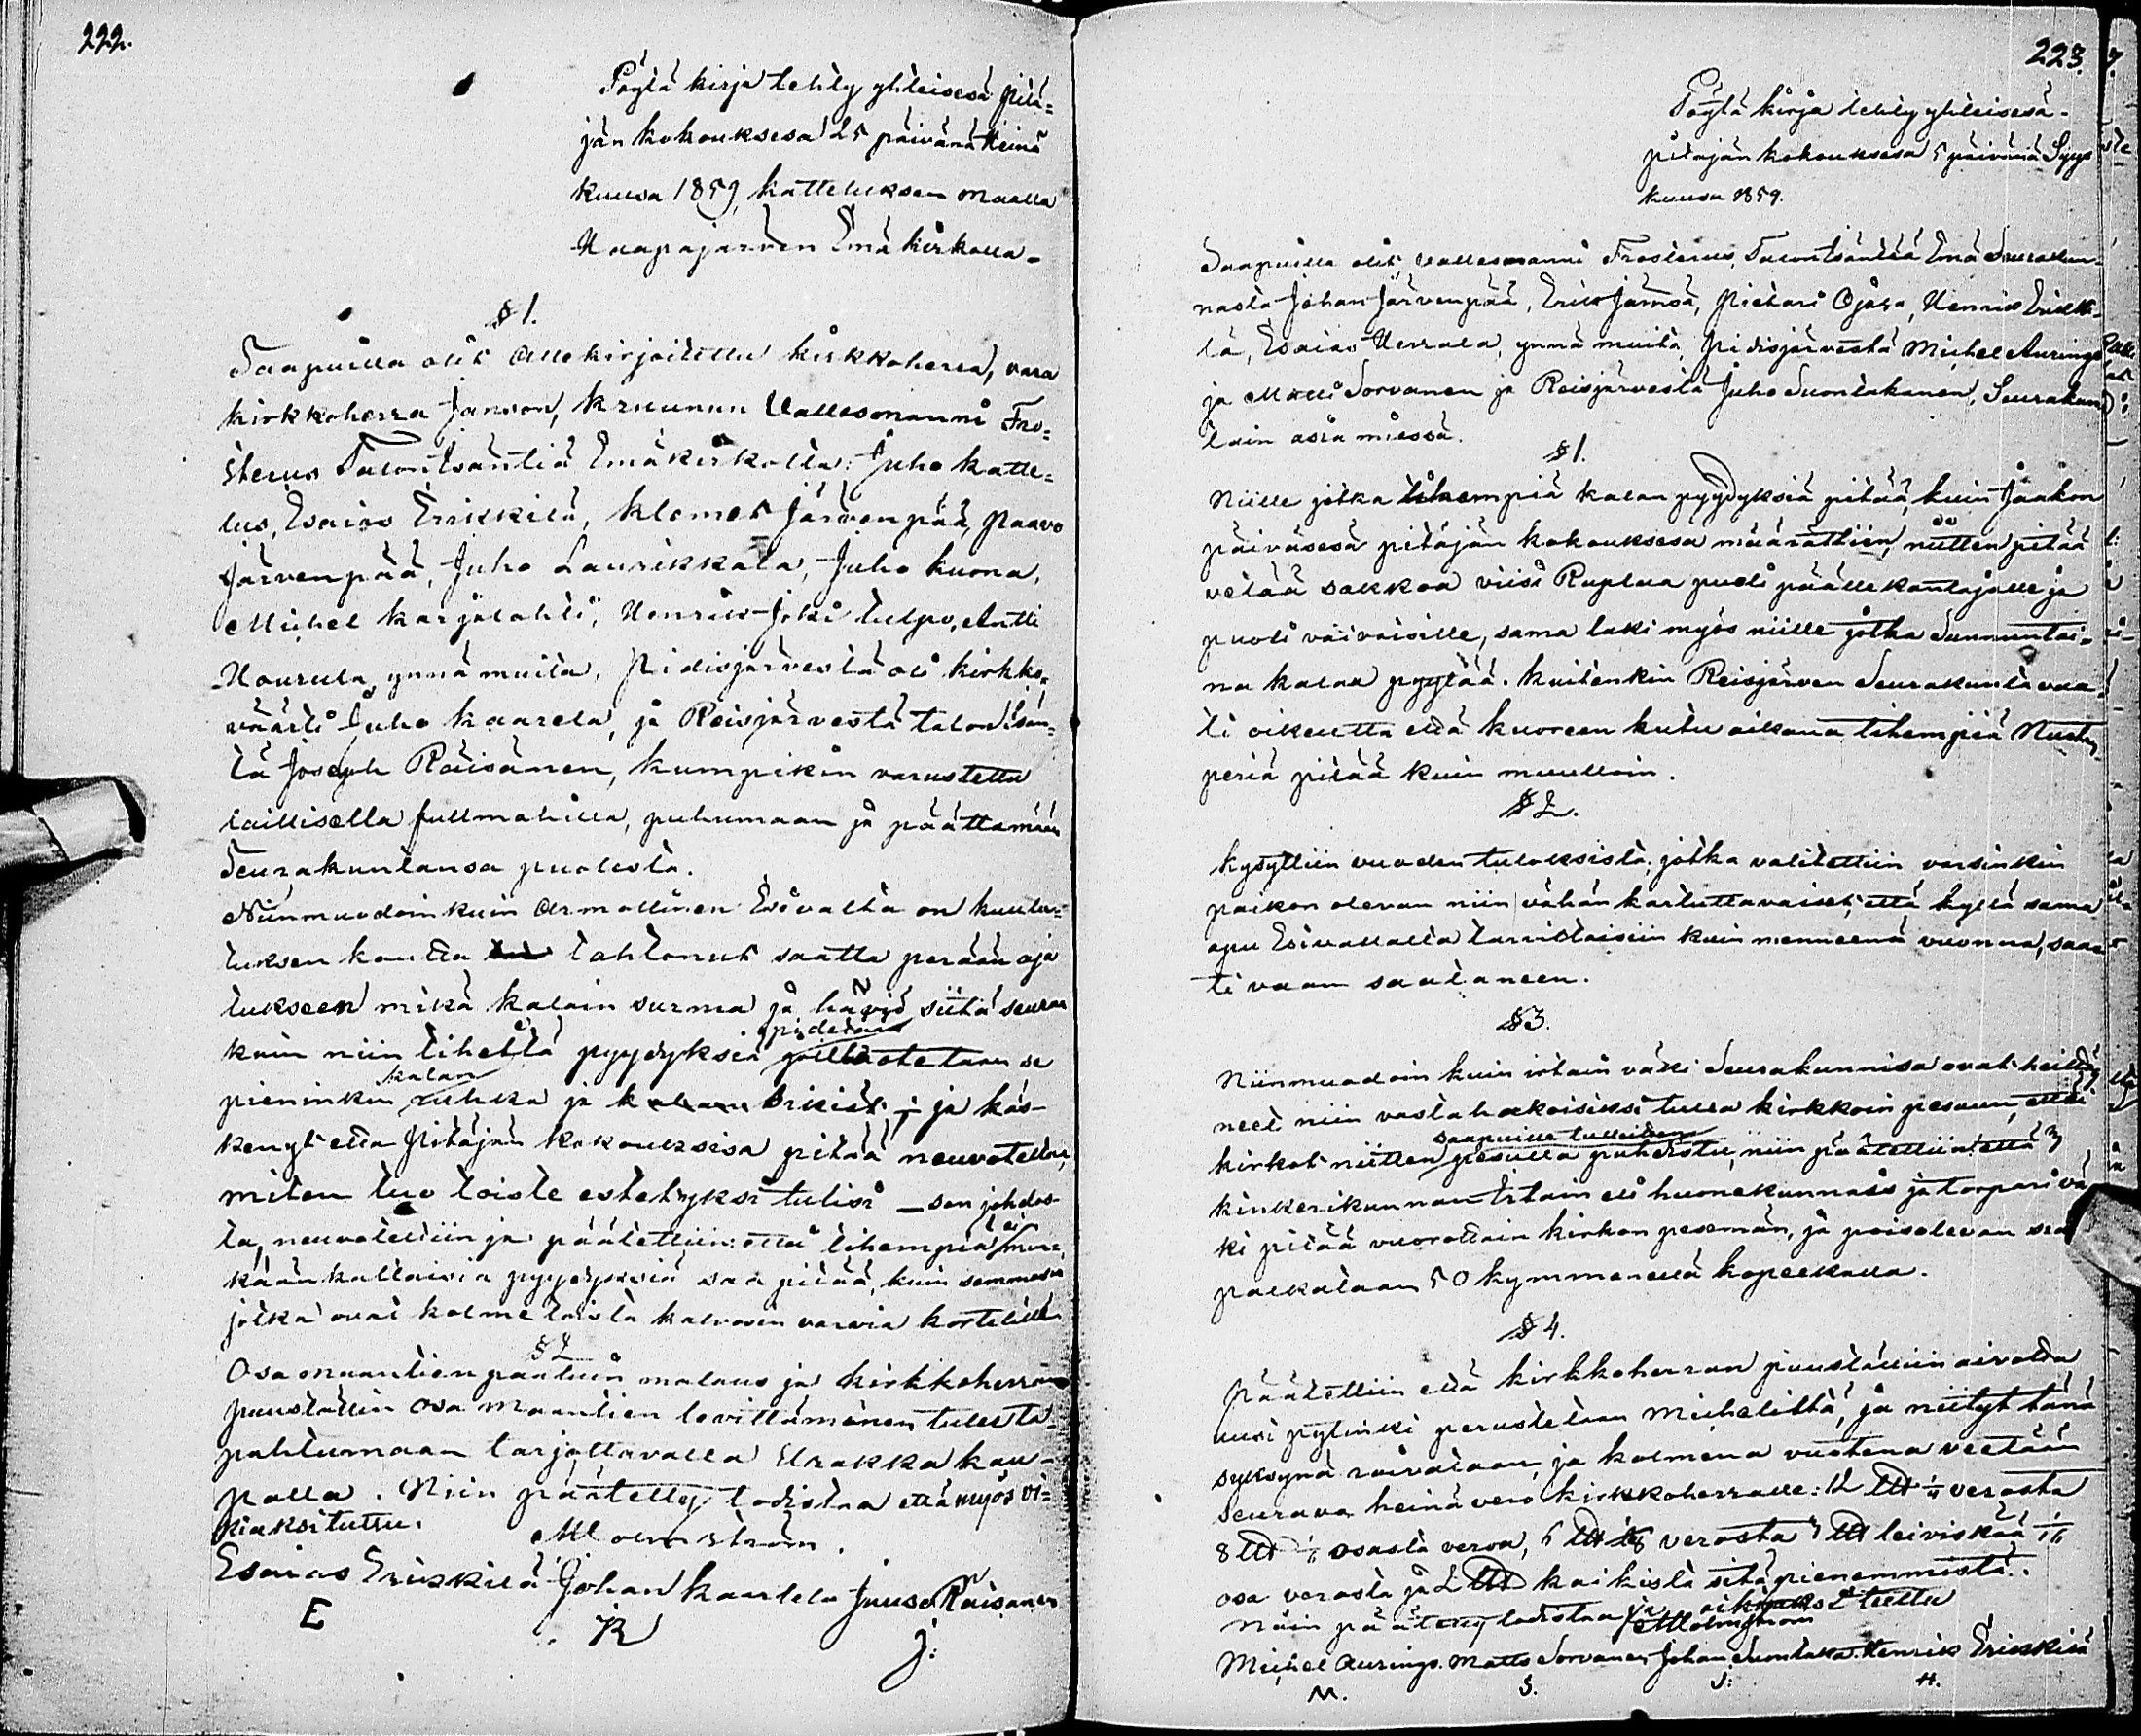 222.
Pöytä kirja tehty yhteisesä pitä-
jän kokouksesa 25 päivänä Heinä
kuusa 1859, Katteluksen maalla
Haapajärven Emä kirkolla -
§ 1.
Saapuilla olit Allekirjoitettu kirkkoherra, vara
kirkkoherra Janson, kruunun Vallesmanni Fro-
sterus Talon Isäntiä Emäkirkolta: Juho Katte-
lus, Esaias Erikkilä, Klemet Järvenpää, Paavo
Järvenpää, Juho Laurikkala, Juho Kuona,
Michel Karjalahti, Henrik Joki tulpo, Antti
Haurula, ynnä muita. Pidisjärvestä oli kirkko-
väärti Juho Kaarela, ja Reisjärvestä talon Isän-
tä Joseph Räisänen, kumpikin varustettu
laillisella fullmahilla, puhumaan ja päättämään
Seurakuntansa puolesta.
Niinmuodoin kuin Armollinen Esivalta on kuulu-
tuksen kautta tahtonut saatta perään aja
tukseen mikä kalain surma ja häviö siitä seuraa
kuin niin tiheltä pyydyksiä pidetään otetaan se
pieninkin kalan ja ja käs-
kenyt että Pitäjän kokouksisa pitää neuvotella,
miten tuo toiste estetyksi tulisi _ sen johdos-
ta, neuvoteltiin ja päätettiin: että tihempiä ei min-
kään kaltaisia pyydyksiä saa pitää, kuin semmosia
jotka ovat kolme toista kalvosin varvia korttelilla
§ 2
Osa maantien paaluin malaus ja kirkkoherran
puustallin osa maantien levittäminen tulee ta-
pahtumaan tarjottavalla Urakka kau-
palla. Niin päätetty todistaa että myös vi-
siaksituttu.
M Holmström.
Esaias Erikkilä Johan Kaarela Juuso Räisänen
E K J:
223.
Pöytä kirja tehty yhteisesä -
pitäjän kokouksesa 5 päivänä Syys
kuusa 1859.
Saapuilla olit Vallesmanni Frosterus, Talon Isäntiä Emä Seurakun-
nasta Johan Järvenpää, Erik Jämsä, Pietari Ojala, Henrik Erikki-
lä, Esaias Herrala, ynnä muita, Pidisjärvestä Michel Aurings
ja Matti Sorvanen ja Reisjärvestä Juho Suontakanen, Seurakun
tain asia miessä.
§ 1.
Niille jotka tihempiä kalan pyydyksiä pitää, kuin Jaakon
päiväsesä pitäjän kokouksesa määrättiin, niitten pitää
vetää sakkoa viisi Ruplaa puoli päälle kantajalle ja
puoli vaivaisille, sama laki myös niille jotka Sunnuntai-
na kalaa pyytää. Kuitenkin Reisjärven Seurakunta vaa-
ti oikeutta että kuoreen kutu aikana tihempiä Nuoty-
periä pitää kuin muulloin.
§ 2.
Kysyttiin vuoden tuloksista, jotka valitettiin varsinkin
paikon olevan niin vähän karttuttavaiset, että kyllä sama
apu Esivallalta tarvittaisiin kuin menneenä vuonna, saa-
ti vaan saataneen.
§ 3.
Niinmuodoin kuin irtain väki Seurakunnisa ovat heitty
neet niin vastahakoisiksi tulla kirkkoin pesuun, ettei
kirkot niitten saapuille tulleitten pesulla puhdistu, niin päätettiin että
kinkerikunnan Irtain eli huonekunnais ja torpari vä
ki pitää vuorottain kirkon pesemän, ja poisolevan sia
palkataan 50 kymmenellä kopeekalla.
§ 4.
Päätettiin että kirkkoherran puustalliin aivotta
uusi pytinki perustetaan Michelistä, ja niityt tänä
syksynä raivataan, ja kolmena vuotena veetään
Seurava heinä vero kirkkoherralle: 12 LtH 1/4 verosta
8 LtH 1/6 osasta veroa, 6 LtH 1/8 verosta 3 LtH leiviskää 1/16
osa verosta ja 2 LtH kaikista sitä pienemmistä.
Näin päätetty todistaa ja oikiaksi tuttu
M Holmström
Michel Aurings. Matts Sorvanen Johan Suontaka. Henrik Erikkilä
M. S. J: H.